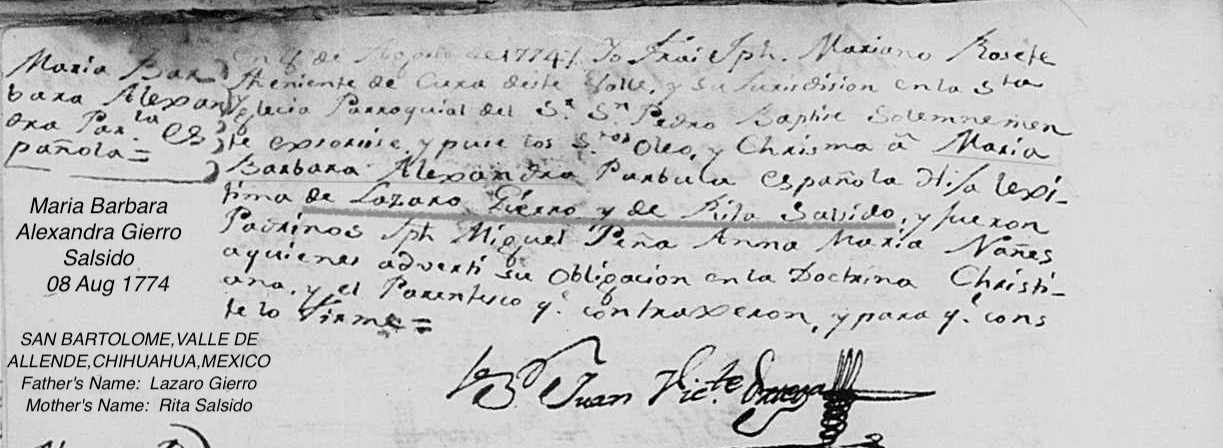 Maria Bar
bara Alexan
dra Par.la Es
pañola =
En 8 de Agosto de 1774 Yo Frai Jph. Mariano Rosete
theniente de Cura deste Valle, y su Jurisdision en la Sta
Yglecia Parroquial del Sr. Sn. Pedro Baptise Solemnemen
te exsorsise, y puse los Stos Oleo, y Chrisma â Maria
Barbara Alexandra Parbula española Hija lexi-
tima de Lazaro Gierro y de Rita Salsido, y fueron
Padrinos Jph Miguel Peña Anna Maria Nañes
aquienes adverti su obligacion en la Doctrina Christi-
ana, y el Parentesco q.e contraxeron, y para q.e cons
te lo Firme =
Br. Juan Vic.te
Maria Barbara
Alexandra Gierro
Salsido
08 Aug 1774
SAN BARTOLOME,VALLE DE
ALLENDE,CHIHUAHUA,MEXICO
Father's Name: Lazaro Gierro
Mother's Name: Rita Salsido